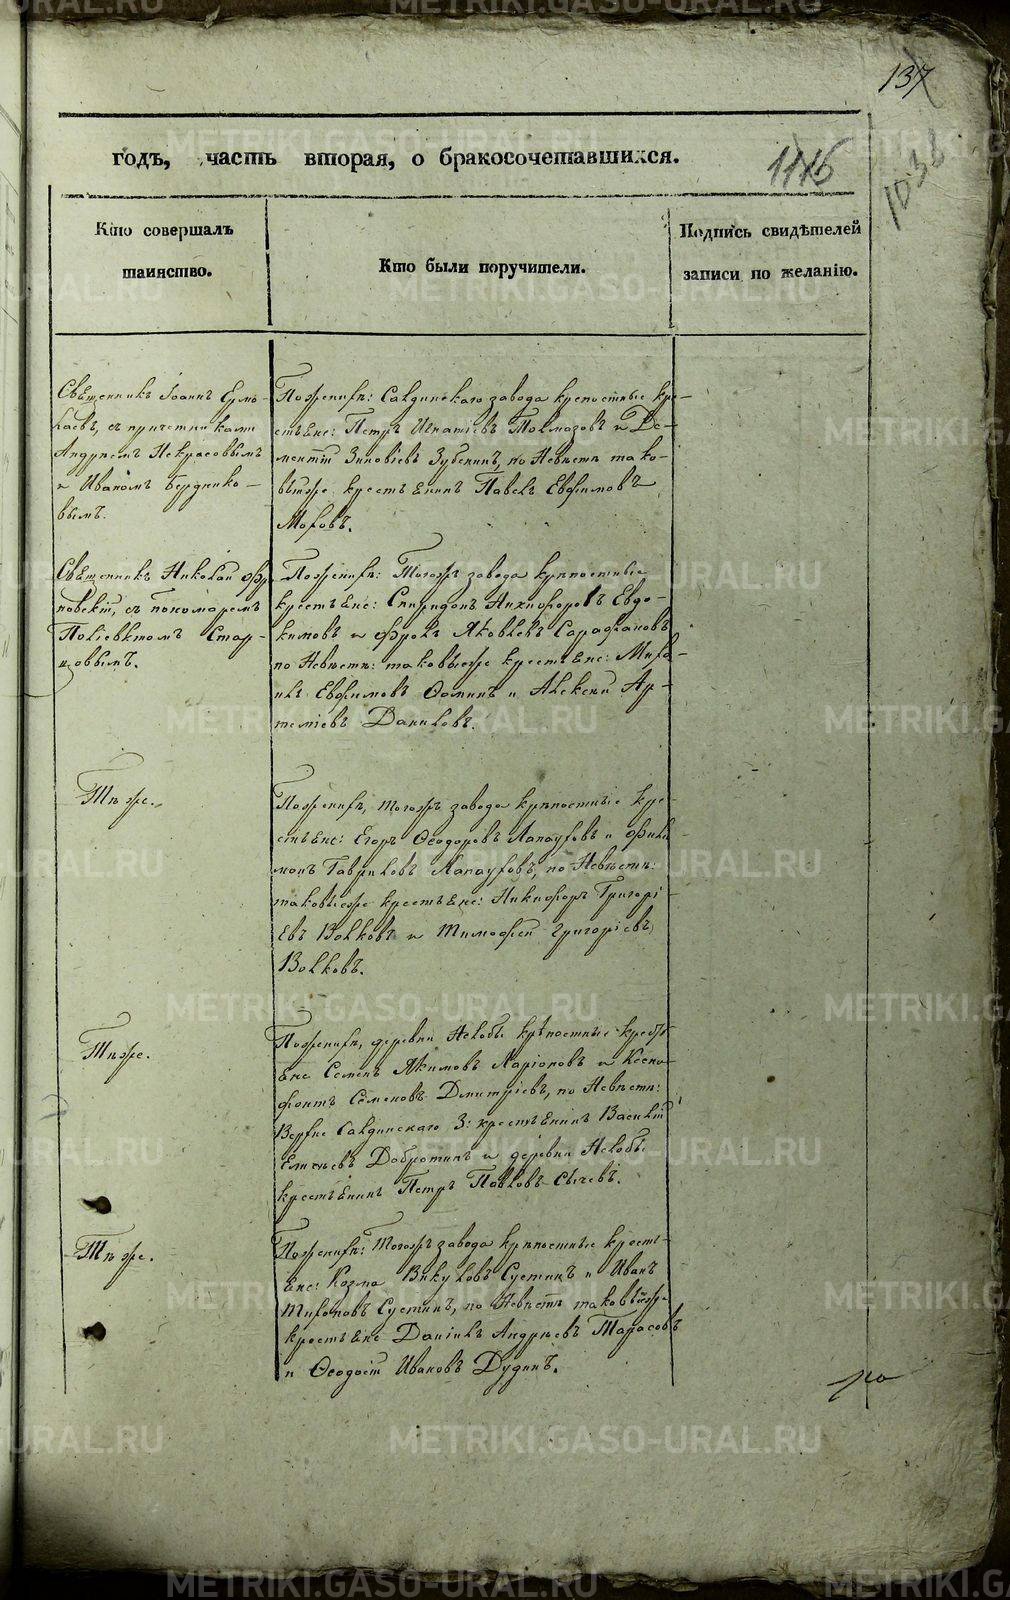 137
годъ, часть вторая, о бракосочетавшихся.
1038
Кто совершалъ
таинство.
Кто были поручители.
Подпись свидѣтелей
записи по желанію.
Священникъ Іоаннъ Ермо-
лаевъ, съ причетниками
Андреемъ Некрасовымъ
и Иваномъ Бердинко-
вымъ.
По женихѣ: Салдинскаго завода крепостные кре-
стьяне: Петръ Игнатіевъ Толмазовъ и Де-
ментій Зиновіевъ Зубенинъ, по Невѣстѣ тако-
выйже крестьянинъ Павелъ Евфимовъ
Моховъ.
Священникъ Николай
съ пономаремъ
Поліевктомъ Стар-
цовымъ.
По женихѣ: Тогожъ завода крѣпостные
крестьяне: Спиридонъ Никифоровъ Евдо-
кимовъ и Фролъ Яковлевъ Сарафановъ
по Невѣстѣ: таковыеже крестьяне: Миха-
илъ Евфимовъ Фоминъ и Алексей Ар-
теміевъ Даниловъ.
Тѣже.
По женихѣ, тогожъ завода крѣпостные кре-
стьяне: Егоръ Ѳеодоровъ Лапауховъ и Фили-
монъ Гавриловъ Лапауховъ, по Невѣстѣ:
таковыеже крестьяне: Никифоръ Григорі-
евъ Волковъ и Тимофей Григоріевъ
Волковъ.
Тѣже.
По женихѣ, деревни Нелобы крѣпостные кресть-
яне Семенъ Якимовъ Ларіоновъ и Ксено-
фонтъ Семеновъ Дмитріевъ, по Невѣстѣ:
Верхне Салдинскаго З: крестьянинъ Василій
Добротинъ и деревни Нелобы
крестьянинъ Петръ Павловъ Сычевъ.
Тѣже.
По женихѣ: Тогожъ завода крѣпостные кресть-
яне: Козма Викуловъ Сустинъ и Иванъ
Мироновъ Сустинъ, по Невѣстѣ таковыеже
крестьяне Даніилъ Андреевъ Тарасовъ
и Ѳеодосій Ивановъ Дудинъ.